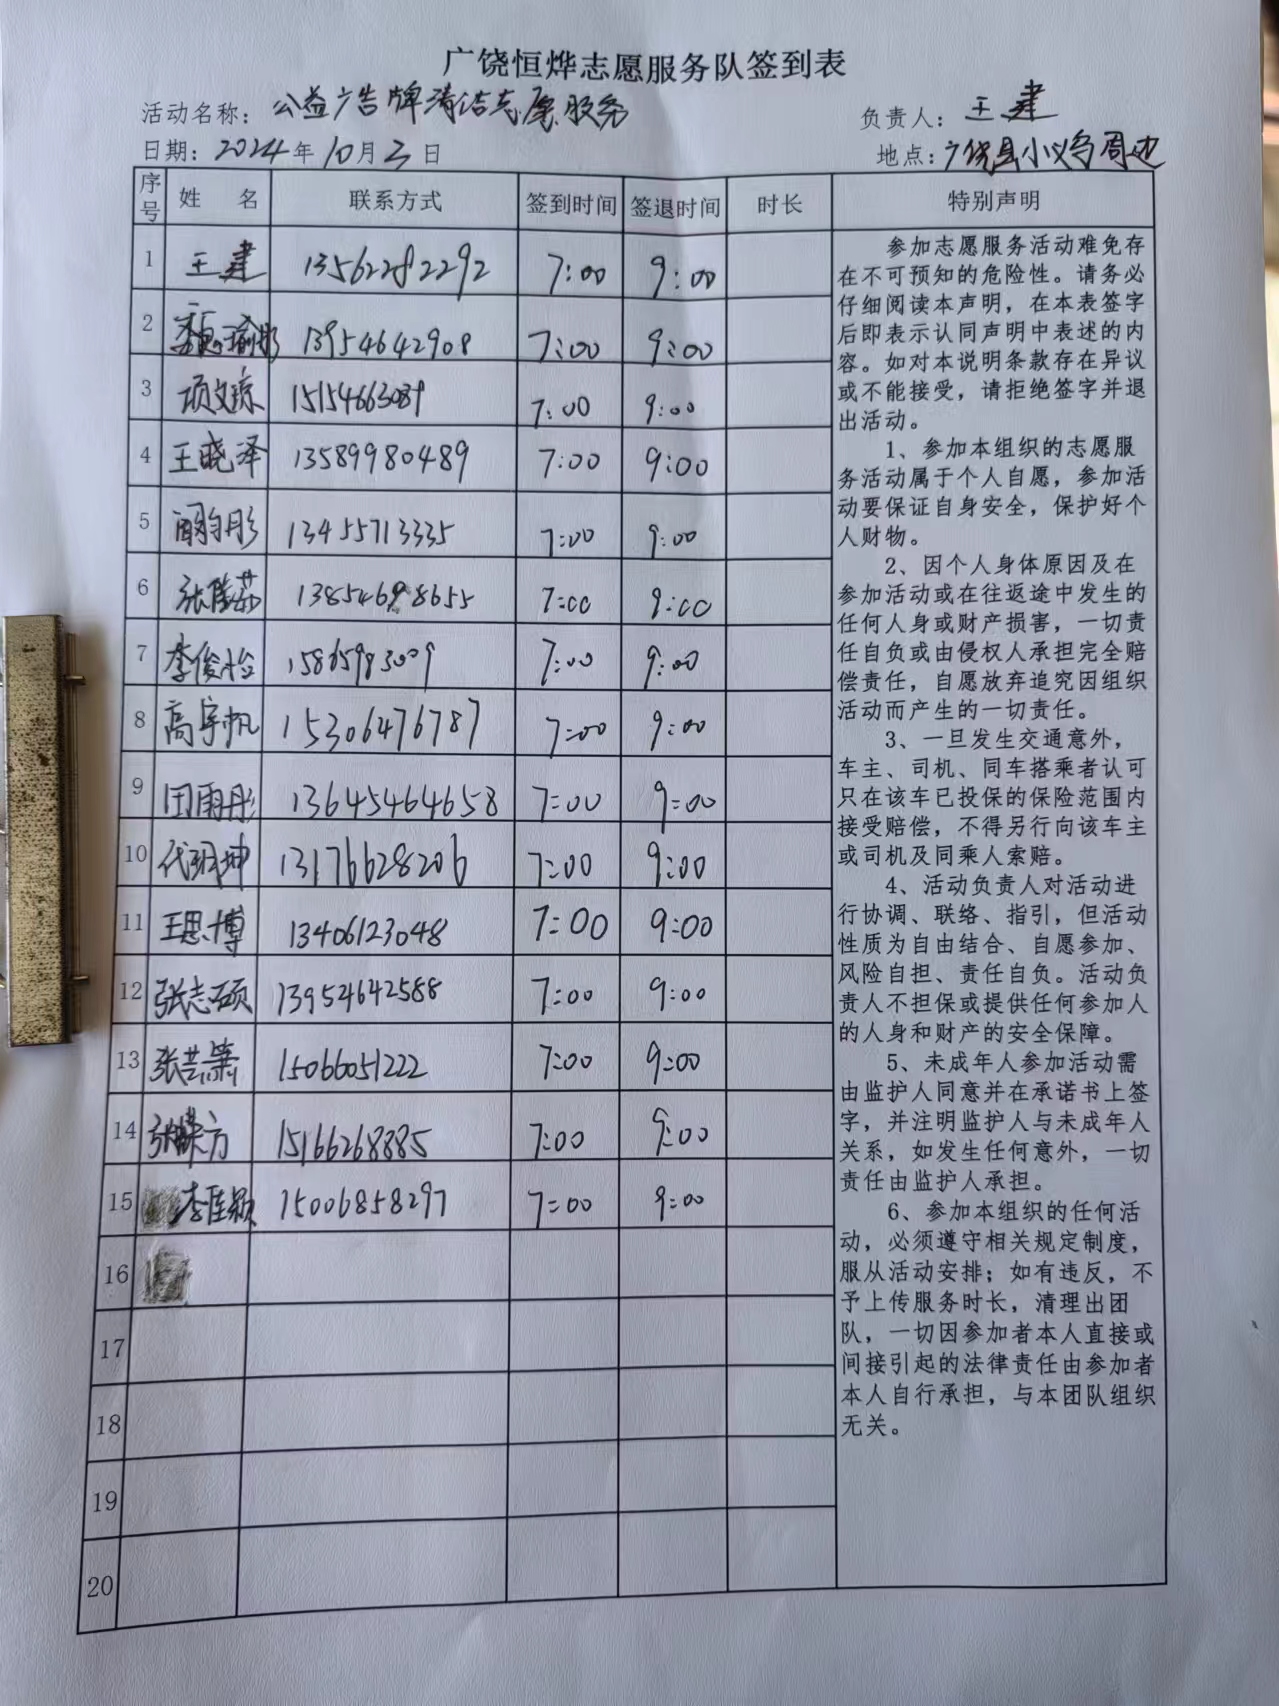 广饶恒烨志愿服务队签到表
活动名称：公益广告牌清洁志愿服务 负责人：王建
日期：2024年10月3日 地点：广饶县小义乌周边
序号 姓 名 联系方式 签到时间 签退时间 时长 特别声明
1 王建 13562282292 7:00 9:00
2 13954642908 7:00 9:00
3 项文琼 15154663089 7:00 9:00
4 王晓泽 13589980489 7:00 9:00
5 13455713335 7:00 9:00
6 13854698655 7:00 9:00
7 李俊怡 15865983009 7:00 9:00
8 高宇帆 15306476787 7:00 9:00
9 田雨彤 13645464658 7:00 9:00
10 代玥坤 13176628206 7:00 9:00
11 王思博 13406123048 7:00 9:00
12 张志硕 13954642588 7:00 9:00
13 张芸箫 15066051222 7:00 9:00
14 15166268885 7:00 9:00
15 李佳颖 15006858297 7:00 9:00
16
17
18
19
20
参加志愿服务活动难免存
在不可预知的危险性。请务必
仔细阅读本声明，在本表签字
后即表示认同声明中表述的内
容。如对本说明条款存在异议
或不能接受，请拒绝签字并退
出活动。
1、参加本组织的志愿服
务活动属于个人自愿，参加活
动要保证自身安全，保护好个
人财物。
2、因个人身体原因及在
参加活动或在往返途中发生的
任何人身或财产损害，一切责
任自负或由侵权人承担完全赔
偿责任，自愿放弃追究因组织
活动而产生的一切责任。
3、一旦发生交通意外，
车主、司机、同车搭乘者认可
只在该车已投保的保险范围内
接受赔偿，不得另行向该车主
或司机及同乘人索赔。
4、活动负责人对活动进
行协调、联络、指引，但活动
性质为自由结合、自愿参加、
风险自担、责任自负。活动负
责人不担保或提供任何参加人
的人身和财产的安全保障。
5、未成年人参加活动需
由监护人同意并在承诺书上签
字，并注明监护人与未成年人
关系，如发生任何意外，一切
责任由监护人承担。
6、参加本组织的任何活
动，必须遵守相关规定制度，
服从活动安排；如有违反，不
予上传服务时长，清理出团
队，一切因参加者本人直接或
间接引起的法律责任由参加者
本人自行承担，与本团队组织
无关。